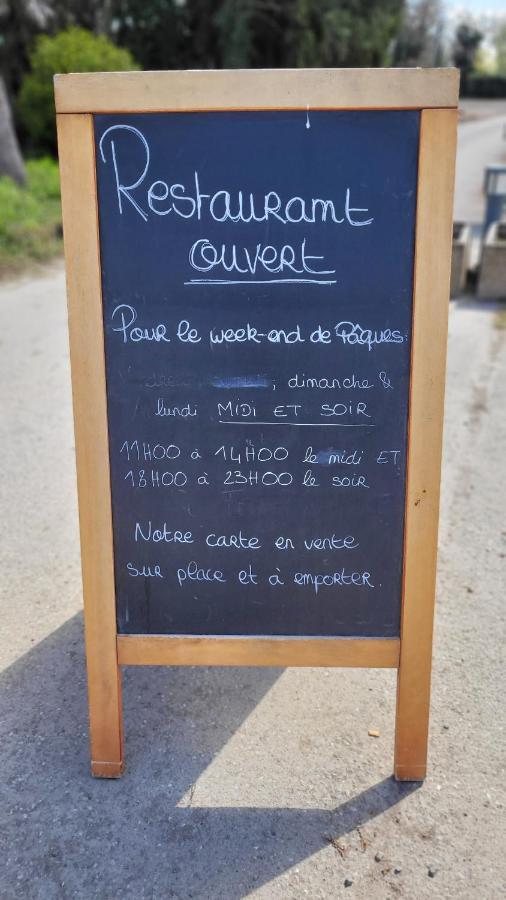 Restaurant
ouvert
Pour le week-end de Pâques:
, dimanche &
lundi MIDI ET SOIR
11H00 à 14H00 le midi ET
18H00 à 23H00 le soir
Notre carte en vente
sur place et à emporter.